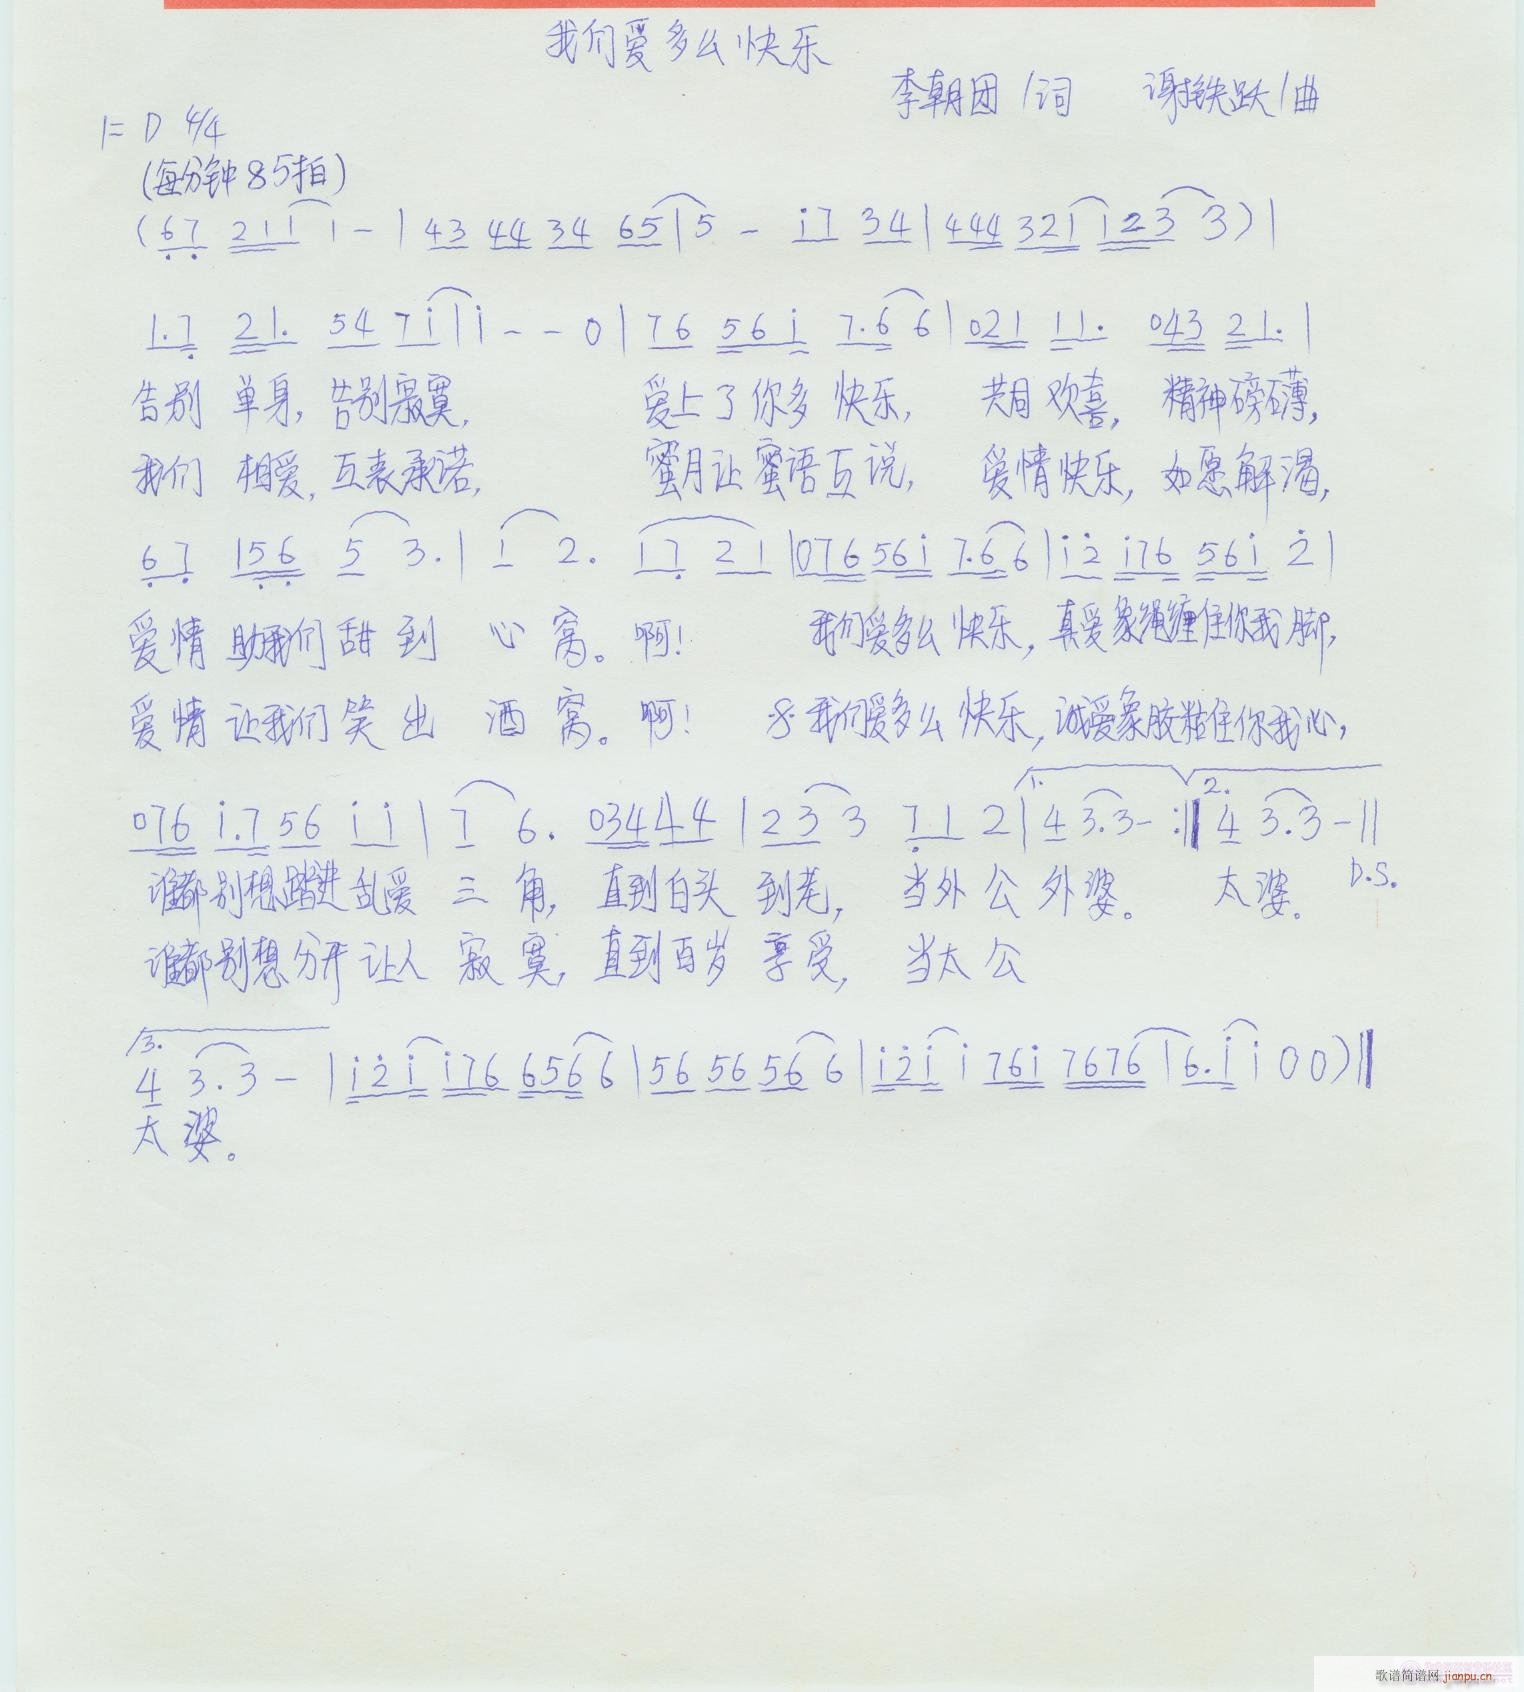 我们爱多么快乐
李朝团/词 谢铁跃/曲
1=D 4/4
(每分钟85拍)
(67 211 1-|43 44 34 65|5 - i7 34|444 321 123 3)|
1.7 21. 54 7i|i--0|76 56i 7.6 6|021 11. 043 21.|
告别 单身,告别寂寞, 爱上了你多快乐, 共同欢喜,精神磅礴,
我们 相爱,互表承诺, 蜜月让蜜语互说, 爱情快乐,如愿解渴,
67 156 5 3.|1 2. 17 21|076 56i 7.6 6|i2 i76 56i 2|
爱情 助我们甜到 心窝。啊! 我们爱多么快乐,真爱象绳缠住你我脚,
爱情 让我们笑出 酒窝。啊! 我们爱多么快乐,诚爱象胶粘住你我心,
1. 2.
076 i.7 56 i i|7 6. 034 44|23 3 71 2|4 3.3-:‖4 3.3-‖
谁都别想踏进乱爱三角, 直到白头到老, 当外公外婆。 太婆。 D.S.
谁都别想分开让人寂寞, 直到百岁享受, 当太公
3.
4 3.3 -|i2i i76 656 6|56 56 56 6|i2i i 76i 7676|6.i i 0 0)‖
太婆。
歌谱简谱网 jianpu.cn